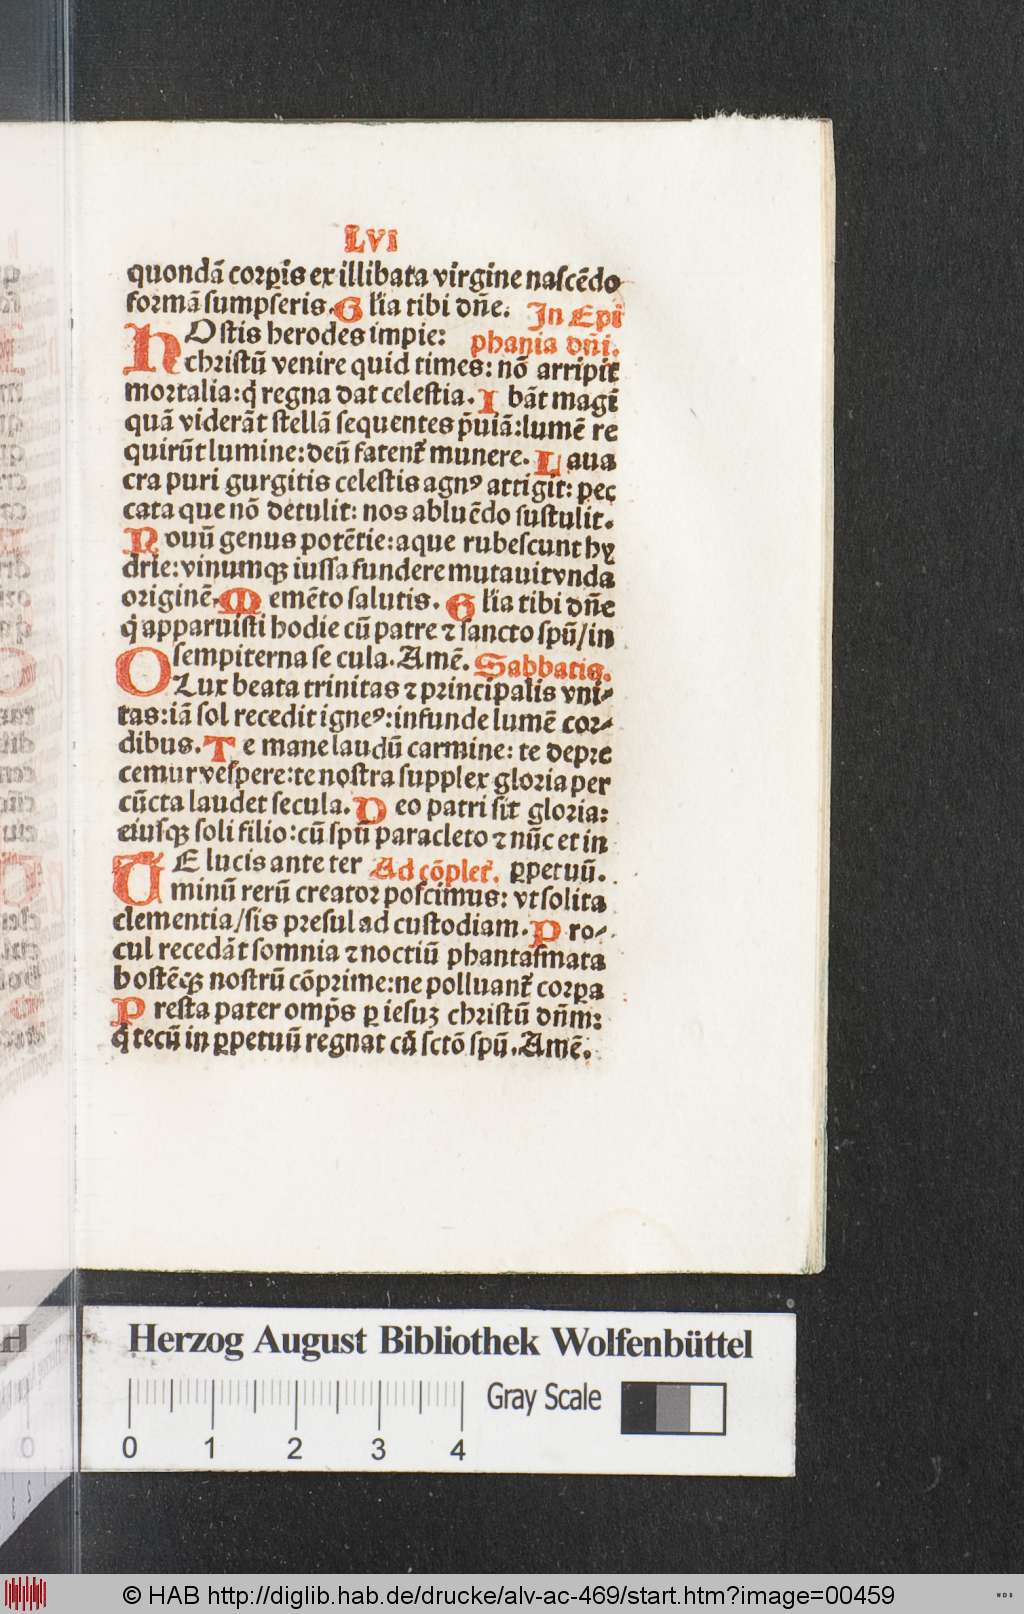 LVI
quondã corꝑis ex illibata virgine nascẽdo
formã sumpseris. G lĩa tibi dñe. In Epi
HOstis herodes impie: phania dñi.
christũ venire quid times: nõ arripit
mortalia: q̃ regna dat celestia. I bãt magi
quã viderãt stellã sequentes p̃uiã: lumẽ re
quirũt lumine: deũ fatent᷑ munere. L aua
cra puri gurgitis celestis agnꝰ attigit: pec
cata que nõ detulit: nos abluẽdo sustulit.
N ouũ genus potẽtie: aque rubescunt hy
drie: vinumqꝫ iussa fundere mutauit vnda
originẽ. M emẽto salutis. G lĩa tibi dñe
q̃ apparuisti hodie cũ patre ⁊ sancto spũ/in
sempiterna se cula. Amẽ. Sabbatis.
O Lux beata trinitas ⁊ principalis vni-
tas: iã sol recedit igneꝰ: infunde lumẽ cor-
dibus. T e mane laudũ carmine: te depre
cemur vespere: te nostra supplex gloria per
cũcta laudet secula. D eo patri sit gloria:
eiusqꝫ soli filio: cũ spũ paracleto ⁊ nũc et in
TE lucis ante ter Ad cõplet᷑. ꝑpetuũ.
minũ rerũ creator poscimus: vt solita
clementia/sis presul ad custodiam. P ro-
cul recedãt somnia ⁊ noctiũ phantasmata
hostẽqꝫ nostrũ cõprime: ne polluant᷑ corpa
P resta pater omp̃s ꝑ iesuꝫ christũ dñm:
q̃ tecũ in ꝑpetuũ regnat cũ sctõ spũ. Amẽ.
Herzog August Bibliothek Wolfenbüttel
Gray Scale
0 1 2 3 4
© HAB http://diglib.hab.de/drucke/alv-ac-469/start.htm?image=00459